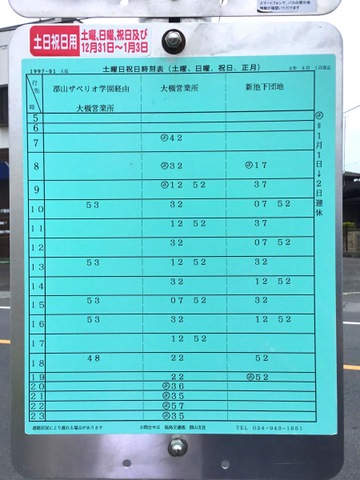 土日祝日用 土曜、日曜、祝日及び
12月31日〜1月3日
土曜日祝日時刻表（土曜、日曜、祝日、正月）
行先 時 郡山ザベリオ学園経由 大槻営業所 大槻営業所 新池下団地
5
6
7 ㊣42
8 ㊣32 ㊣17
9 ㊣12 52 37
10 53 32 07 52
11 12 52 37
12 32 07 52
13 53 12 52 32
14 32 12 52
15 53 07 52 32
16 53 32 12 52
17 12 52
18 48 22 52
19 22 ㊣52
20 ㊣36
21 ㊣35
22 ㊣57
23 ㊣35
＝1月1日→2日運休
道路状況により遅れる場合があります お問合せは 福島交通㈱ 郡山支社